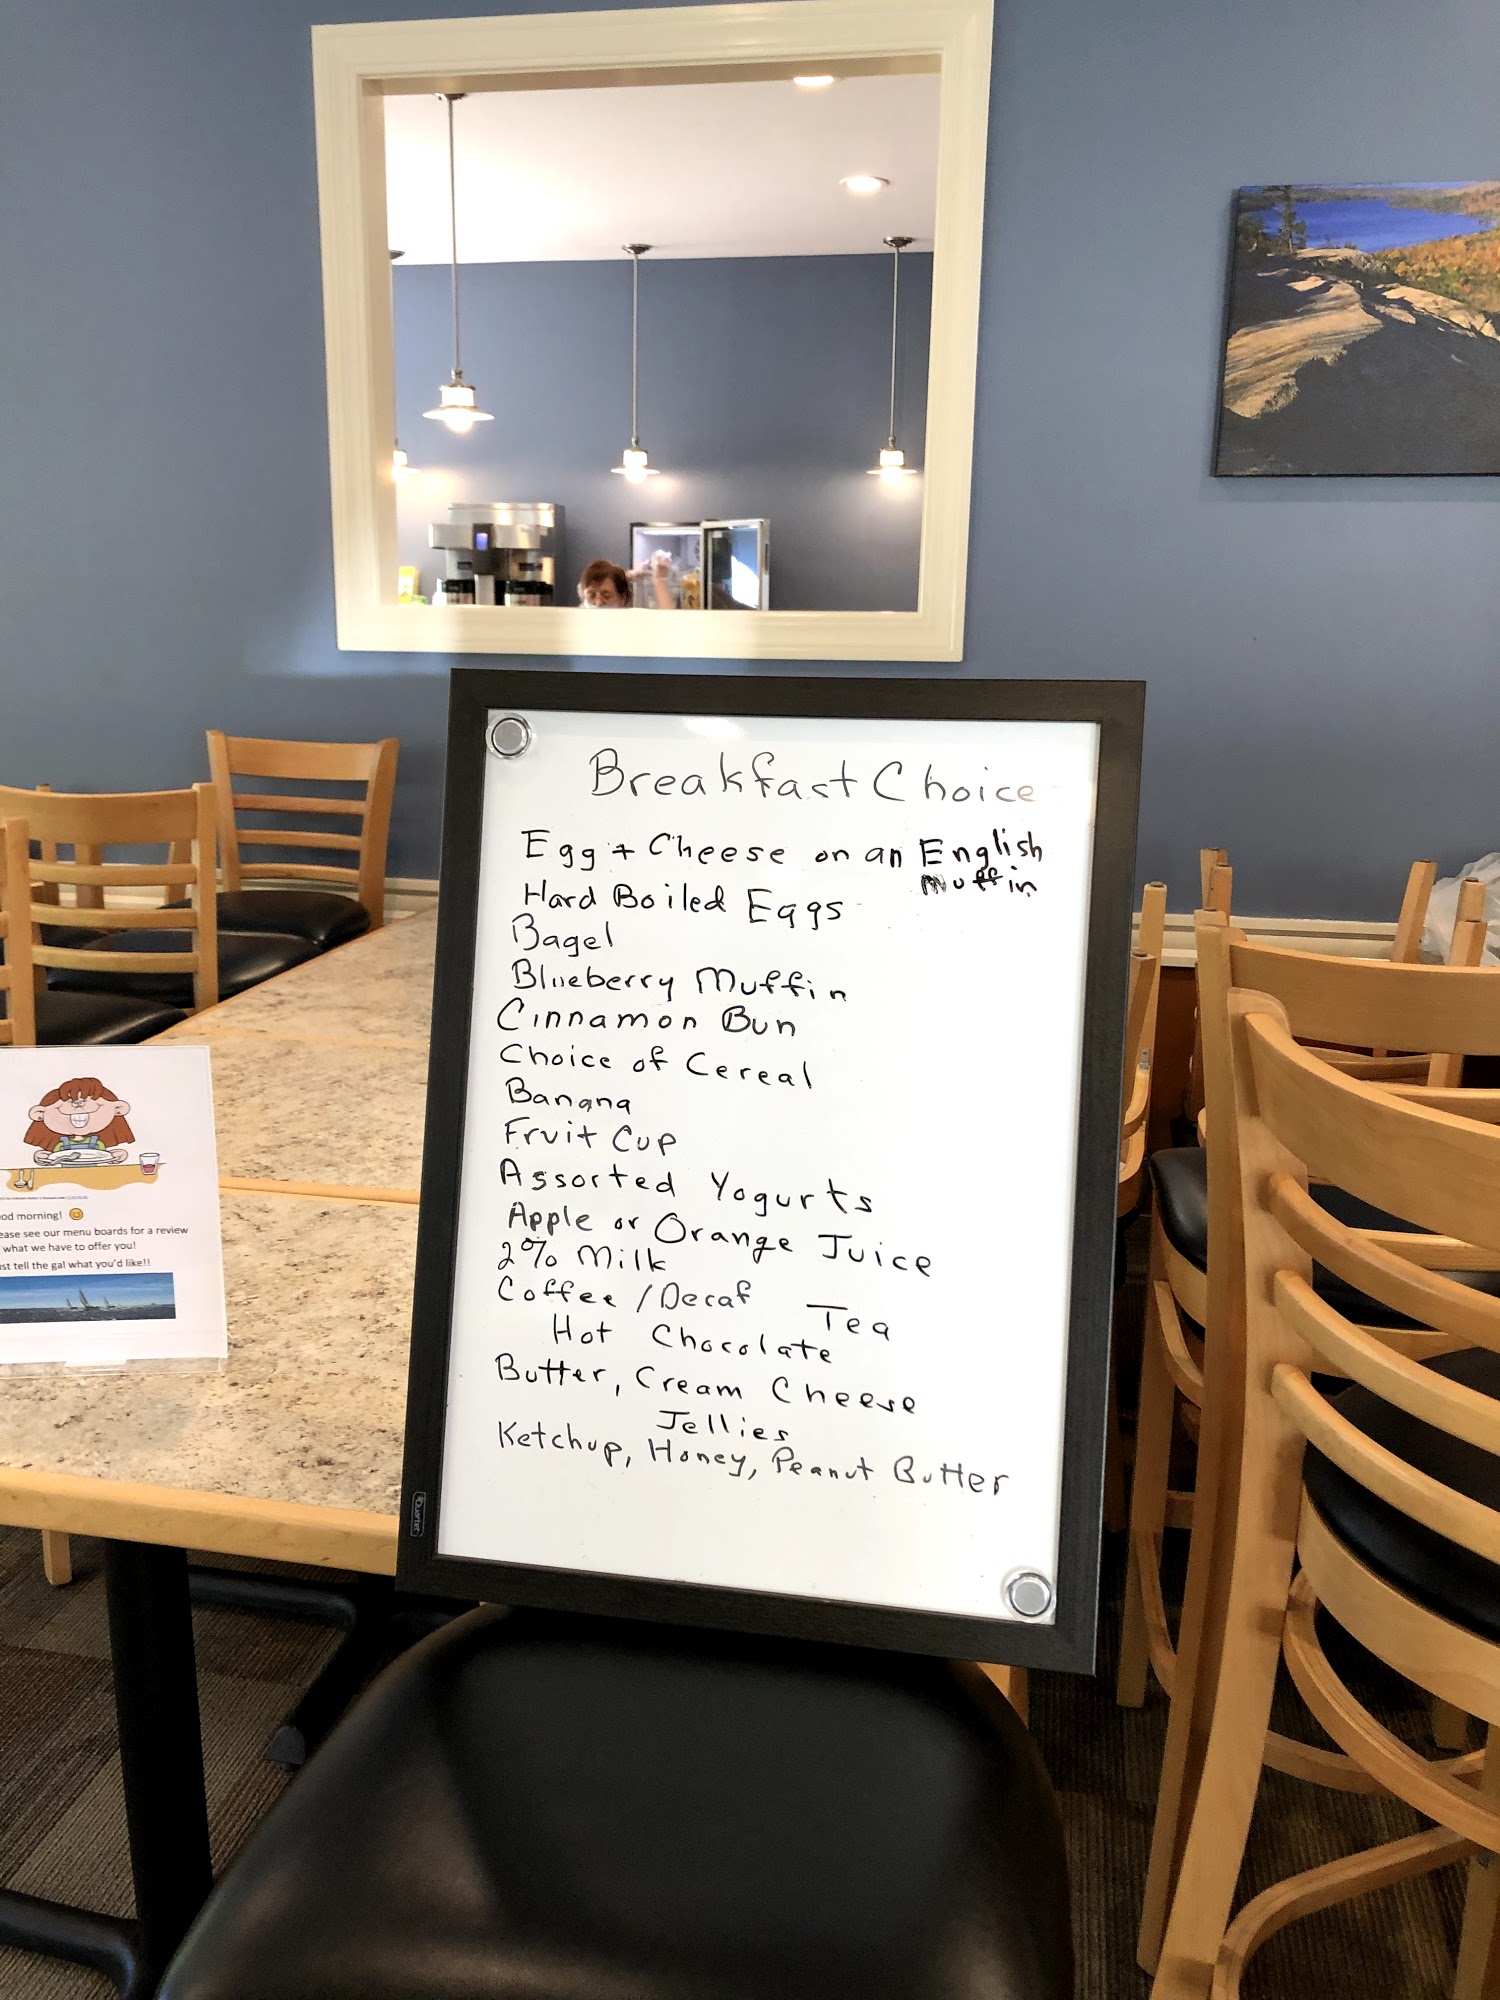 Breakfast Choice
Egg + Cheese on an English
Muffin
Hard Boiled Eggs
Bagel
Blueberry Muffin
Cinnamon Bun
Choice of Cereal
Banana
Fruit Cup
Assorted Yogurts
Apple or Orange Juice
2% Milk
Coffee / Decaf Tea
Hot Chocolate
Butter, Cream Cheese
Jellies
Ketchup, Honey, Peanut Butter
Quartet
od morning! 😊
ease see our menu boards for a review
what we have to offer you!
st tell the gal what you'd like!!